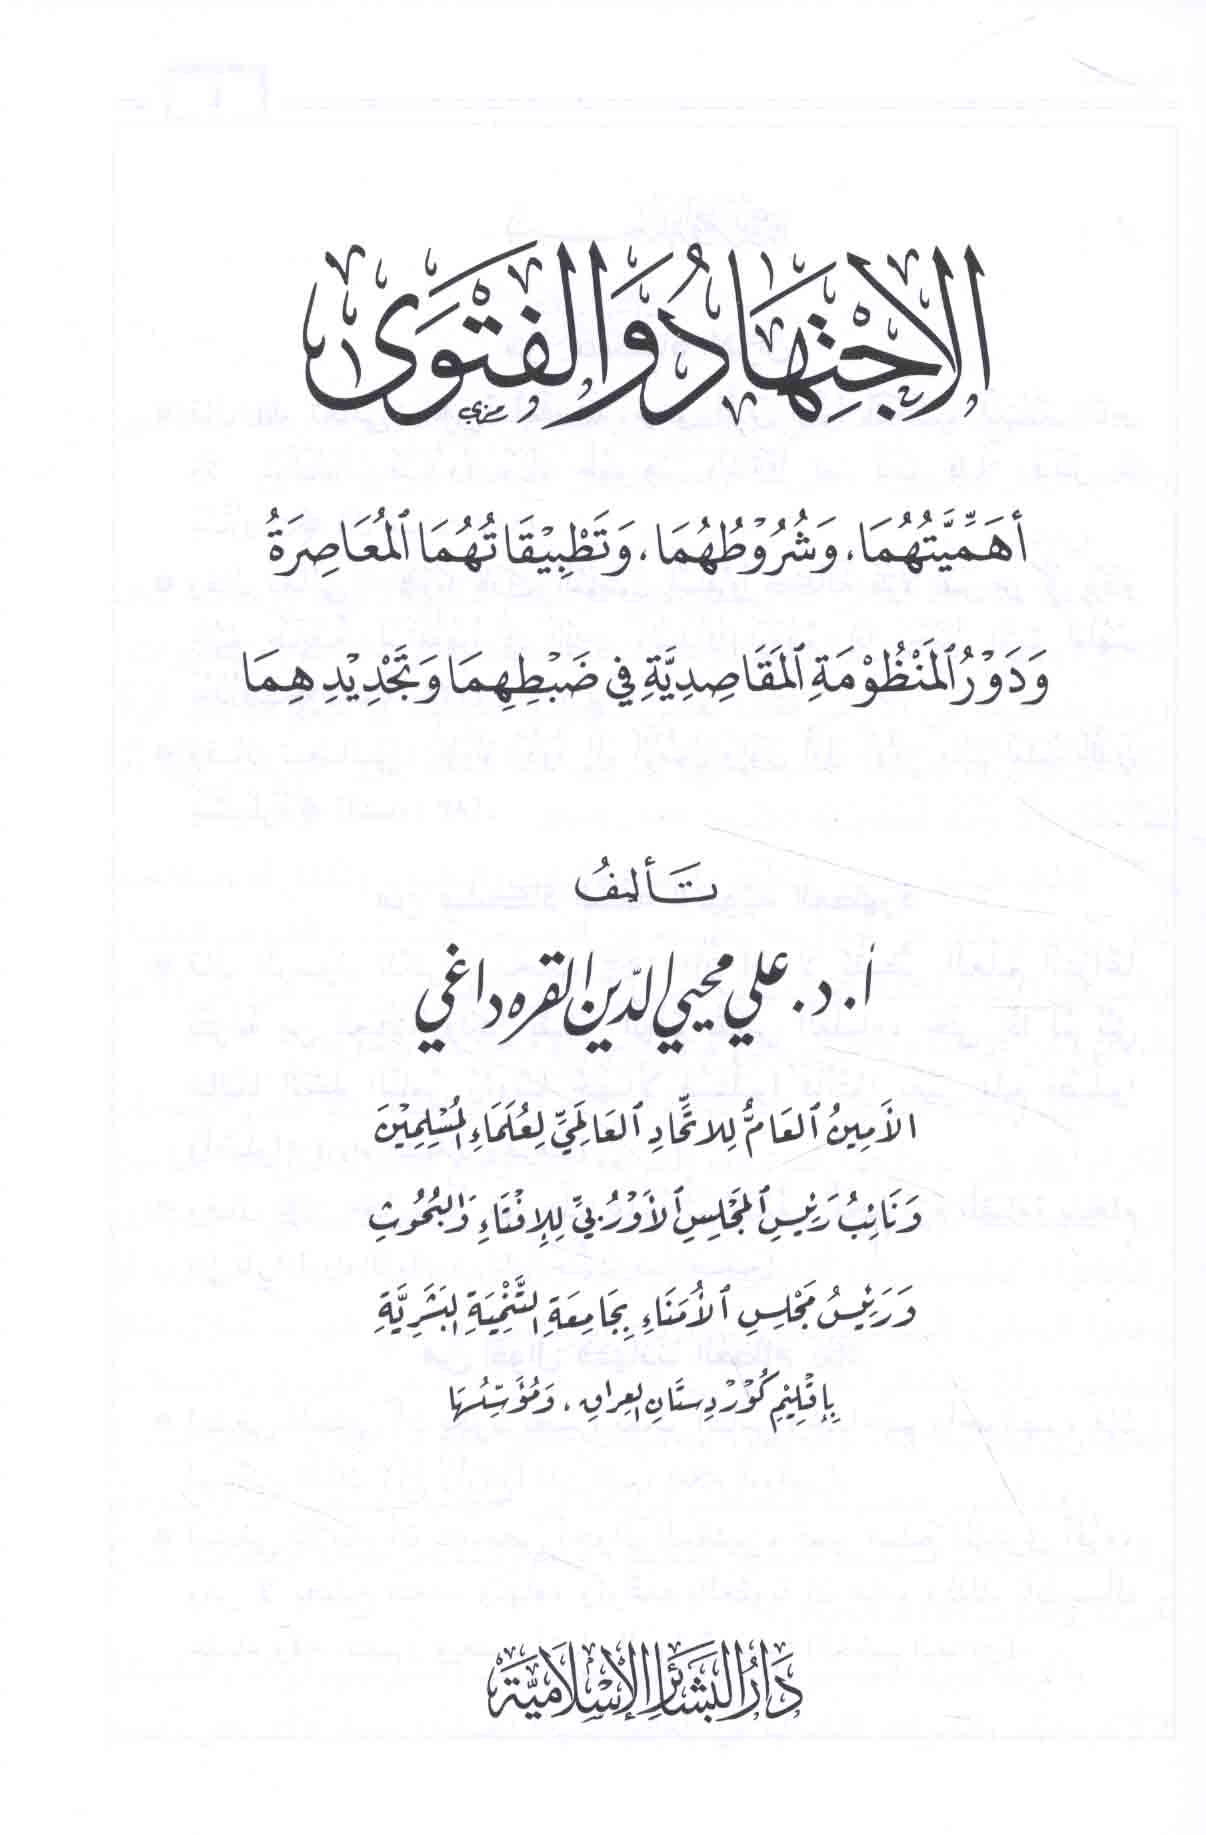 الاِجْتِهَادُ وَالفَتْوَى
أَهَمِّيَّتُهُمَا، وَشُرُوْطُهُمَا، وَتَطْبِيْقَاتُهُمَا ٱلمُعَاصِرَةُ
وَدَوْرُ ٱلمَنْظُوْمَةِ ٱلمَقَاصِدِيَّةِ فِي ضَبْطِهِمَا وَتَجْدِيْدِهِمَا
تَأليفُ
أ. د. علي محيي الدّين القره داغي
الأَمِينُ ٱلعَامُّ لِلاتِّحَادِ ٱلعَالَمِيِّ لِعُلَمَاءِ المُسْلِمِيْنَ
وَنَائِبُ رَئِيْسِ ٱلمَجْلِسِ ٱلأَوْرُبِيِّ لِلإِفْتَاءِ وَالبُحُوثِ
وَرَئِيْسُ مَجْلِسِ ٱلأُمَنَاءِ بِجَامِعَةِ التَّنْمِيَةِ البَشَرِيَّةِ
بِإِقْلِيْمِ كُوْرْدِسْتَانِ العِرَاقِ، وَمُؤَسِّسُهَا
دَارُ البَشَائِرِ الإِسْلَامِيَّة